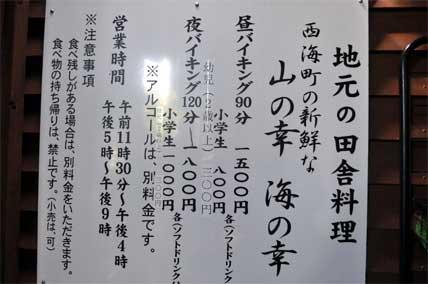 地元の田舎料理
西海町の新鮮な
山の幸 海の幸
昼バイキング90分 一五〇〇円
小学生 八〇〇円
各(ソフトドリンク
幼児(2歳以上)三〇〇円
夜バイキング120分 一八〇〇円
小学生 一〇〇〇円
各(ソフトドリンク
※アルコールは、別料金です。
営業時間 午前11時30分~午後4時
午後5時~午後9時
※注意事項
食べ残しがある場合は、別料金をいただきます。
食べ物の持ち帰りは、禁止です。(小売は、可)